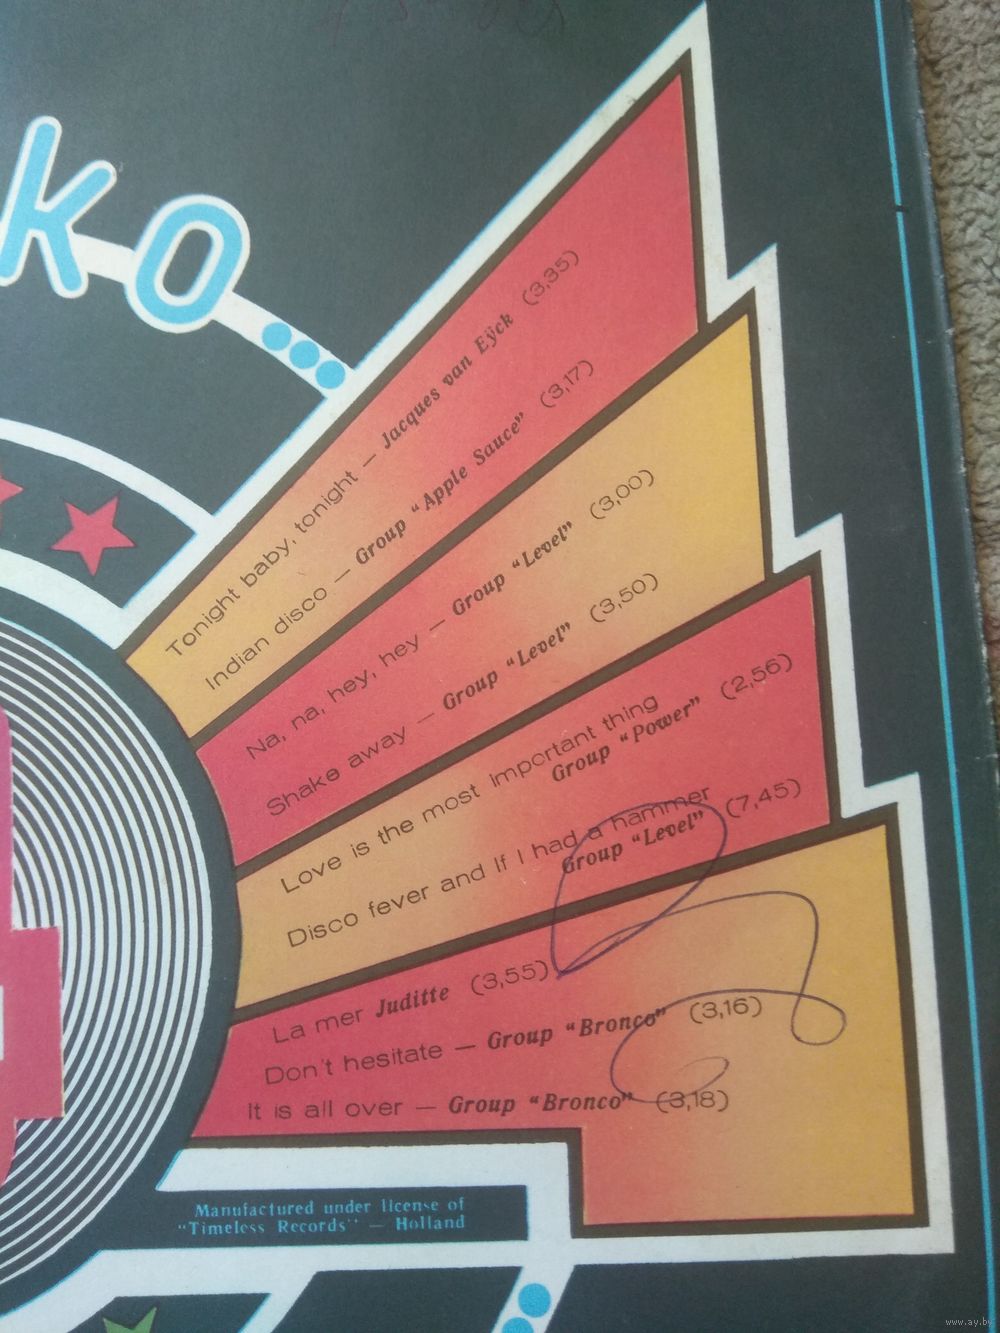 KO
Tonight baby, tonight — Jacques van Eÿck (3,35)
Indian disco — Group “Apple Sauce” (3,17)
Na, na, hey, hey — Group “Level” (3,00)
Shake away — Group “Level” (3,50)
Love is the most important thing
Group “Power” (2,56)
Disco fever and If I had a hammer
Group “Level” (7,45)
La mer Juditte (3,55)
Don't hesitate — Group “Bronco” (3,16)
It is all over — Group “Bronco” (3,18)
Manufactured under license of
“Timeless Records” — Holland
www.ay.by